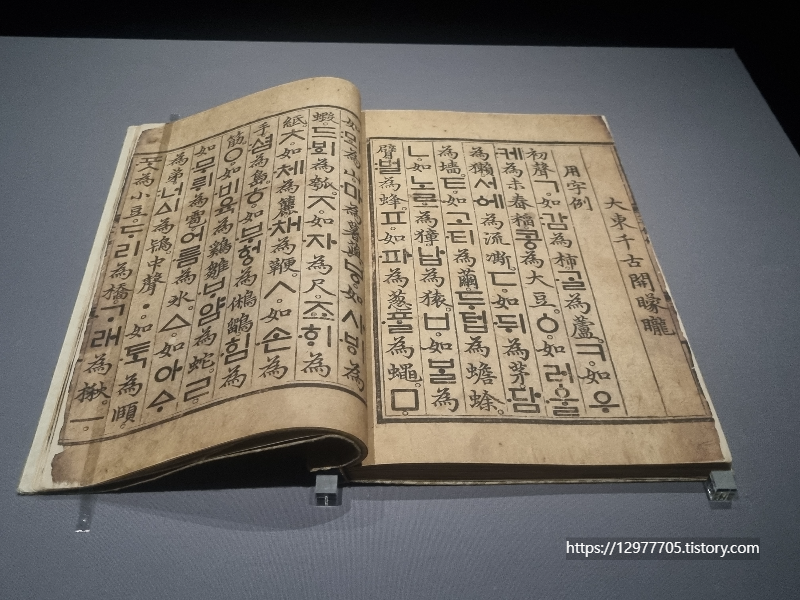 大東千古開矇曨
用字例
初聲ㄱ。如감為柿。ᄀᆞᆯ為蘆。ㅋ。如우
케為未舂稻。콩為大豆。ㆁ。如러ᅌᅮᆯ
為獺。서ᅌᅦ為流凘。ㄷ。如뒤為茅。담
為墻。ㅌ。如고티為繭。두텁為蟾蜍。
ㄴ。如노로為獐。납為猿。ㅂ。如ᄇᆞᆯ為
臂。벌為蜂。ㅍ。如파為葱。ᄑᆞᆯ為蠅。ㅁ。
如뫼為山。마為薯藇。ㅸ。如사ᄫᅵ為
蝦。드ᄫᅴ為瓠。ㅈ。如자為尺。죠ᄒᆡ為
紙。ㅊ。如체為簁。채為鞭。ㅅ。如손為
手。셤為島。ㅎ。如부혀ᇰ為鵂鶹。힘為
筋。ㅇ。如비육為鷄雛。ᄇᆞ얌為蛇。ㄹ。
如무뤼為雹。어름為氷。ㅿ。如아ᅀᆞ
為弟。너ᅀᅵ為鴇。中聲ㆍ。如ᄐᆞᆨ為頤。
ᄑᆞᆺ為小豆。ᄃᆞ리為橋。ᄀᆞ래為楸。ㅡ。
https://12977705.tistory.com